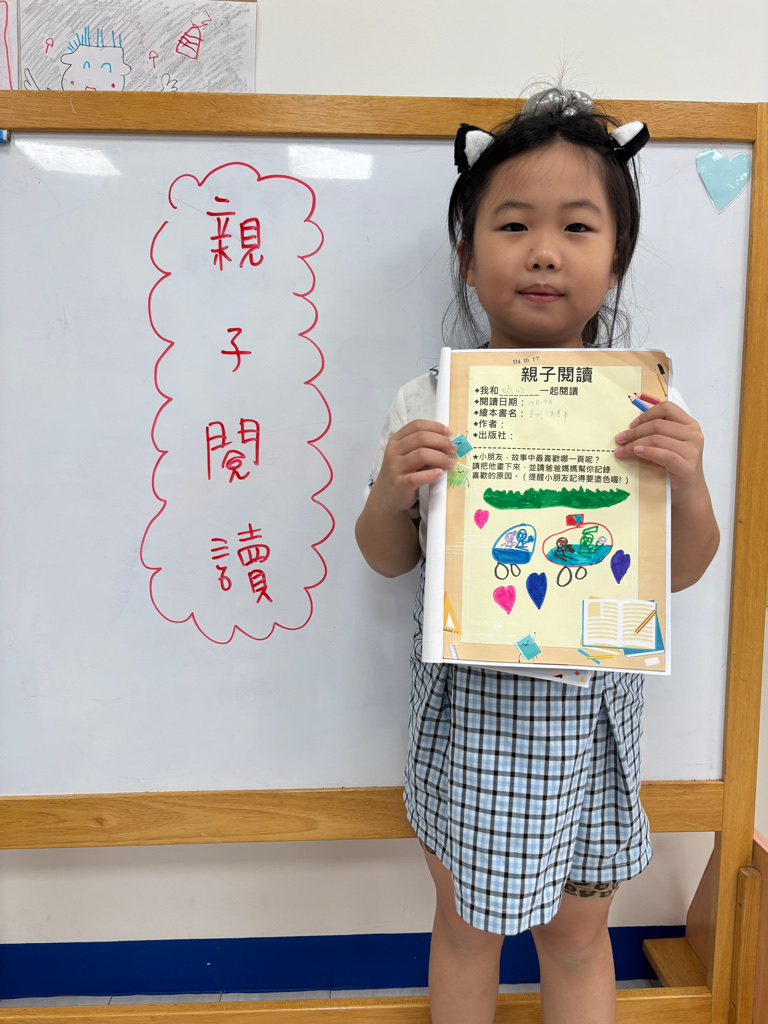 親子閱讀
114.10.17
親子閱讀
◆我和媽媽一起閱讀
◆閱讀日期：
◆繪本書名：
◆作者：
◆出版社：
★小朋友，故事中最喜歡哪一頁呢？
請把他畫下來，並請爸爸媽媽幫你記錄
喜歡的原因。（提醒小朋友記得要塗色喔！）